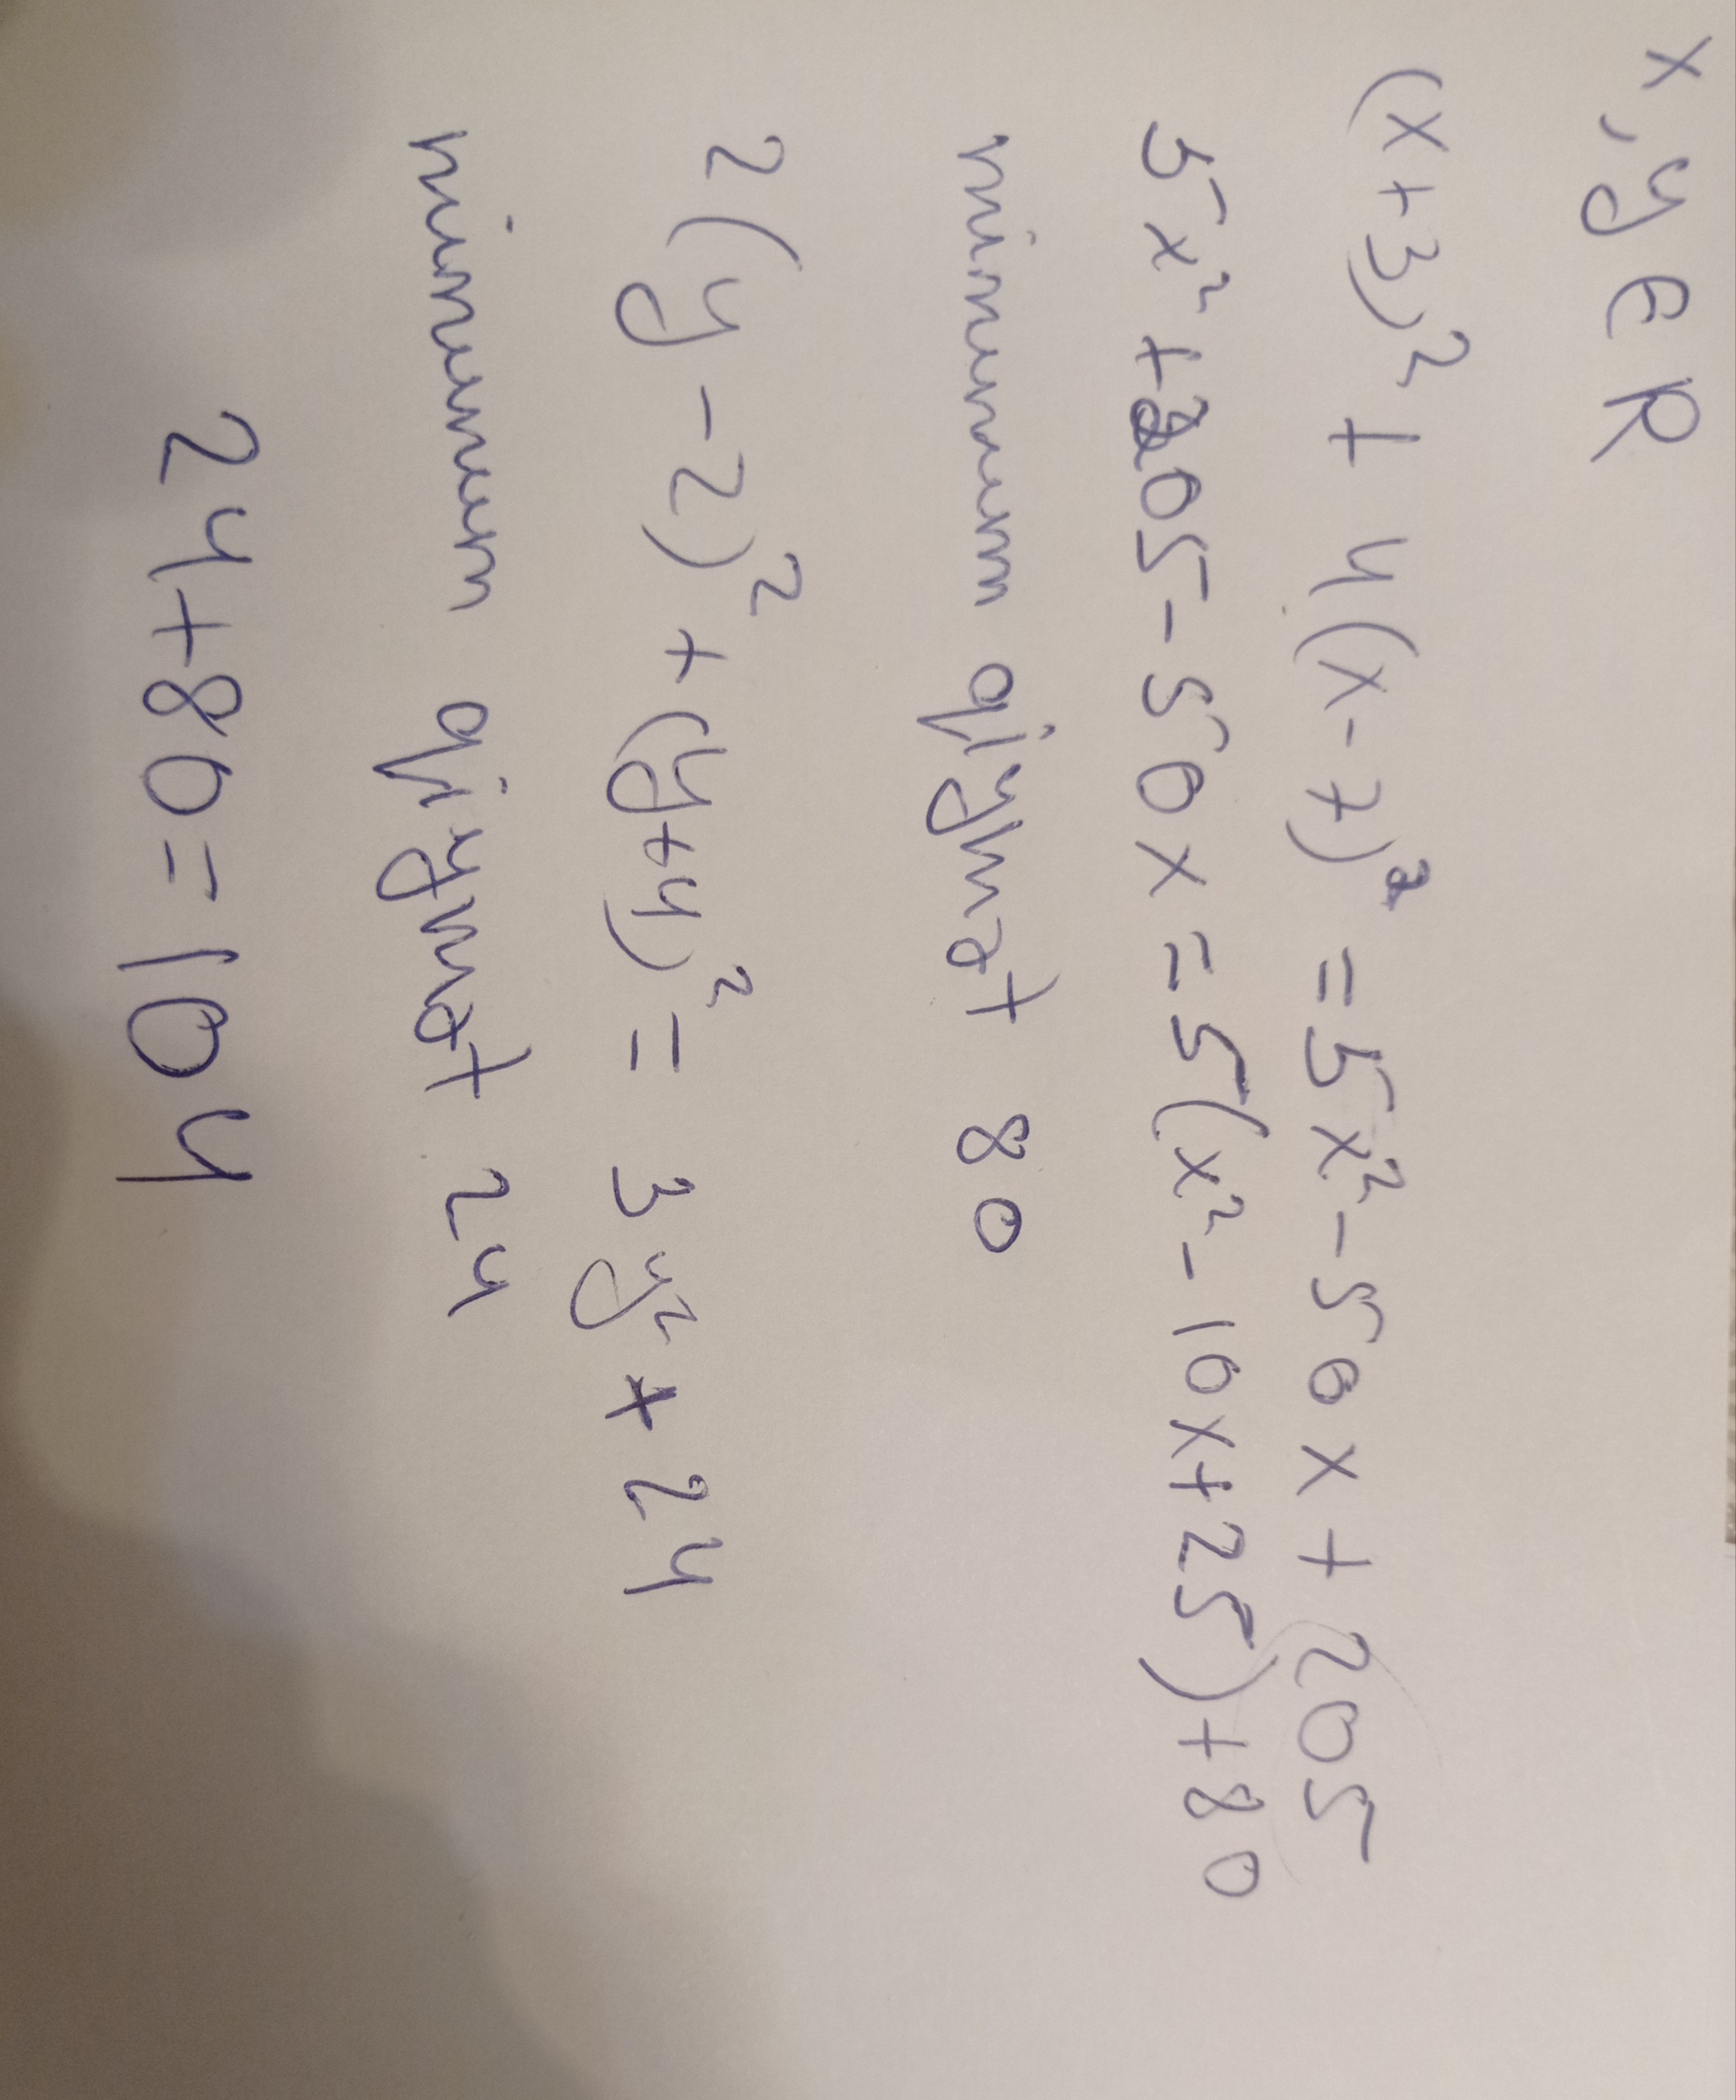 x, y ∈ R
(x+3)² + 4(x-7)² = 5x² - 50x + 205
5x² + 205 - 50x = 5(x² - 10x + 25) + 80
minimum qiymət 80
2(y - 2)² + (y+4)² = 3y² + 24
minimum qiymət 24
24 + 80 = 104